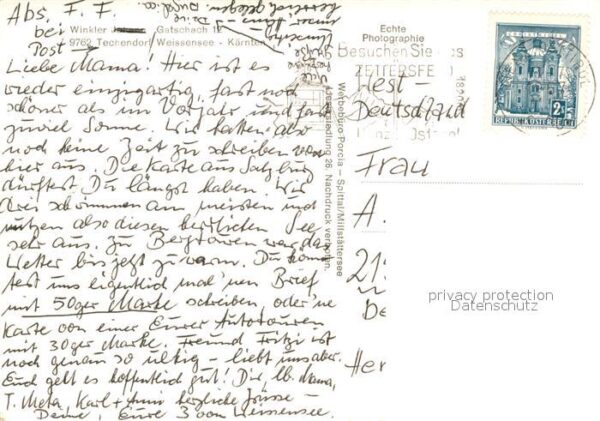 Abs. F. F.
bei Winkler Gatschach 12
Post 9762 Techendorf Weissensee - Kärnten
Liebe Mama! Hier ist es
wieder einzigartig, fast noch
schöner als im Vorjahr und fast
zuviel Sonne. Wir hatten also
noch keine Zeit zu schreiben von
hier aus. Die Karte aus Salzburg
dürftest Du längst haben. Wir
drei schwimmen am meisten und
nützen also diesen herrlichen See
sehr aus. Zu Bergtouren war das
Wetter bis jetzt zu warm. Du könn-
test uns eigentlich mal 'nen Brief
mit 50ger Marke schreiben, oder 'ne
Karte von einer Eurer Autotouren
mit 30ger Marke. Freund Fritzi ist
noch genau so ulkig - liebt uns aber.
Euch geht es hoffentlich gut! Die, lb. Mama,
T. Meta, Karl + herzliche Grüsse -
Deine, Eure 3 vom Weissensee.
Echte
Photographie
Besuchen Sie
ZETTERSFE
Werbebüro Porcia - Spittal/Millstättersee
siedlung 26. Nachdruck verboten.
REPUBLIK ÖSTERREICH
2
West-
Deutschland
Frau
A.
21
De
Her
privacy protection
Datenschutz